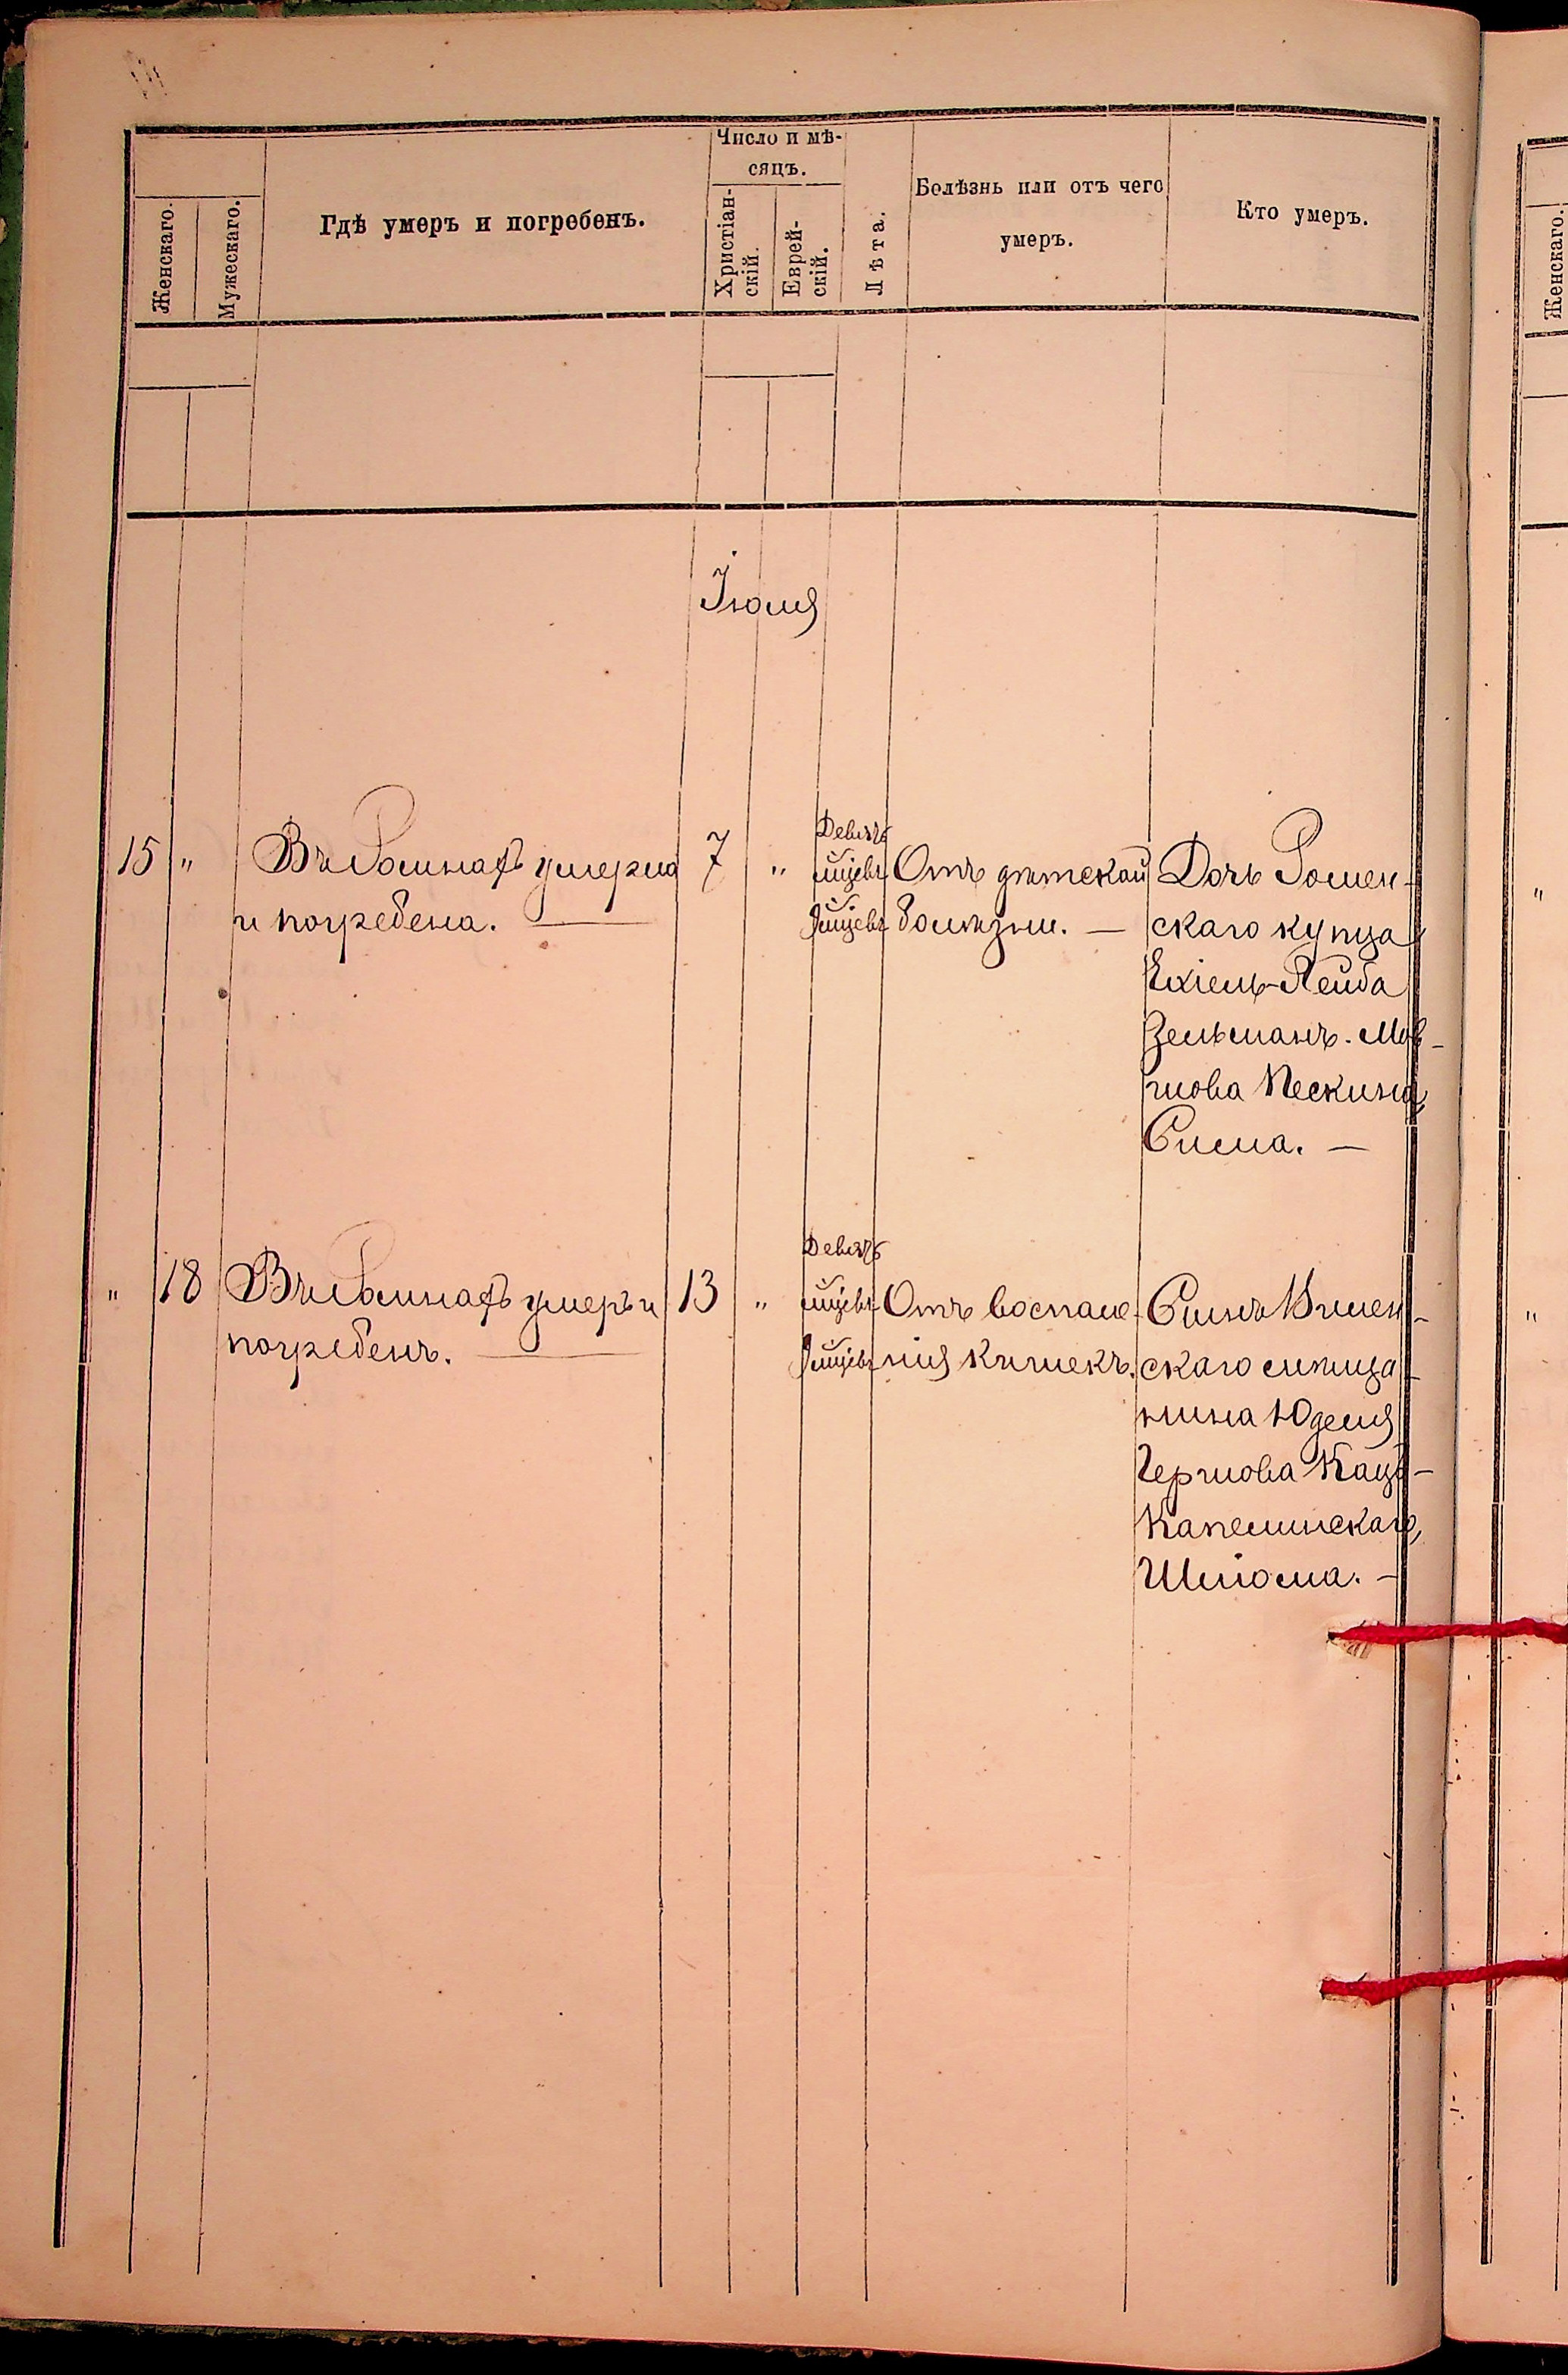 Число и мѣ-
сяцъ.
Женскаго.
Мужескаго.
Гдѣ умеръ и погребенъ.
Христіан-
скій.
Еврей-
скій.
Лѣта.
Болѣзнь или отъ чего
умеръ.
Кто умеръ.
Женскаго.
Іюля
15 " Въ Ромнахъ умерла
и погребена. —
7 "
Девять
мѣсяцевъ
Отъ дѣтской
болѣзни. —
Дочь Ромен-
скаго купца
Ехіель-Лейба
Зельманъ-Мов-
шова Пескина,
Сима. —
" 18 Въ Ромнахъ умеръ и
погребенъ. —
13 "
Девять
мѣсяцевъ
Отъ воспале-
нія кишекъ.
Сынъ Вилен-
скаго мѣща-
нина Юделя
Гершова Кацъ-
Капелинскаго,
Шлома. —
"
"